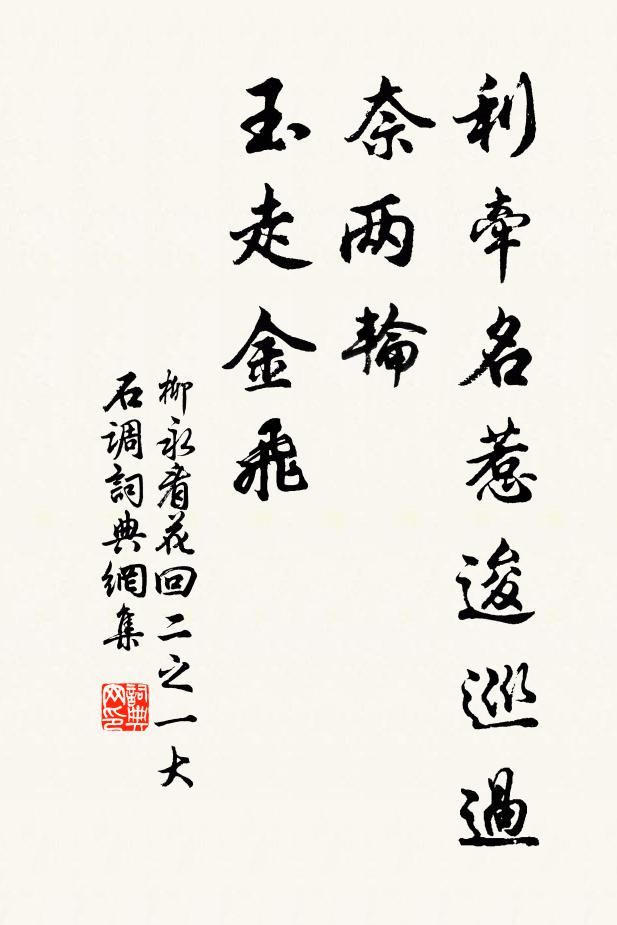 利牵名惹逡巡過
奈两輪
玉走金飛
柳永看花回二之一大
石调詞典網集
詞典
网印